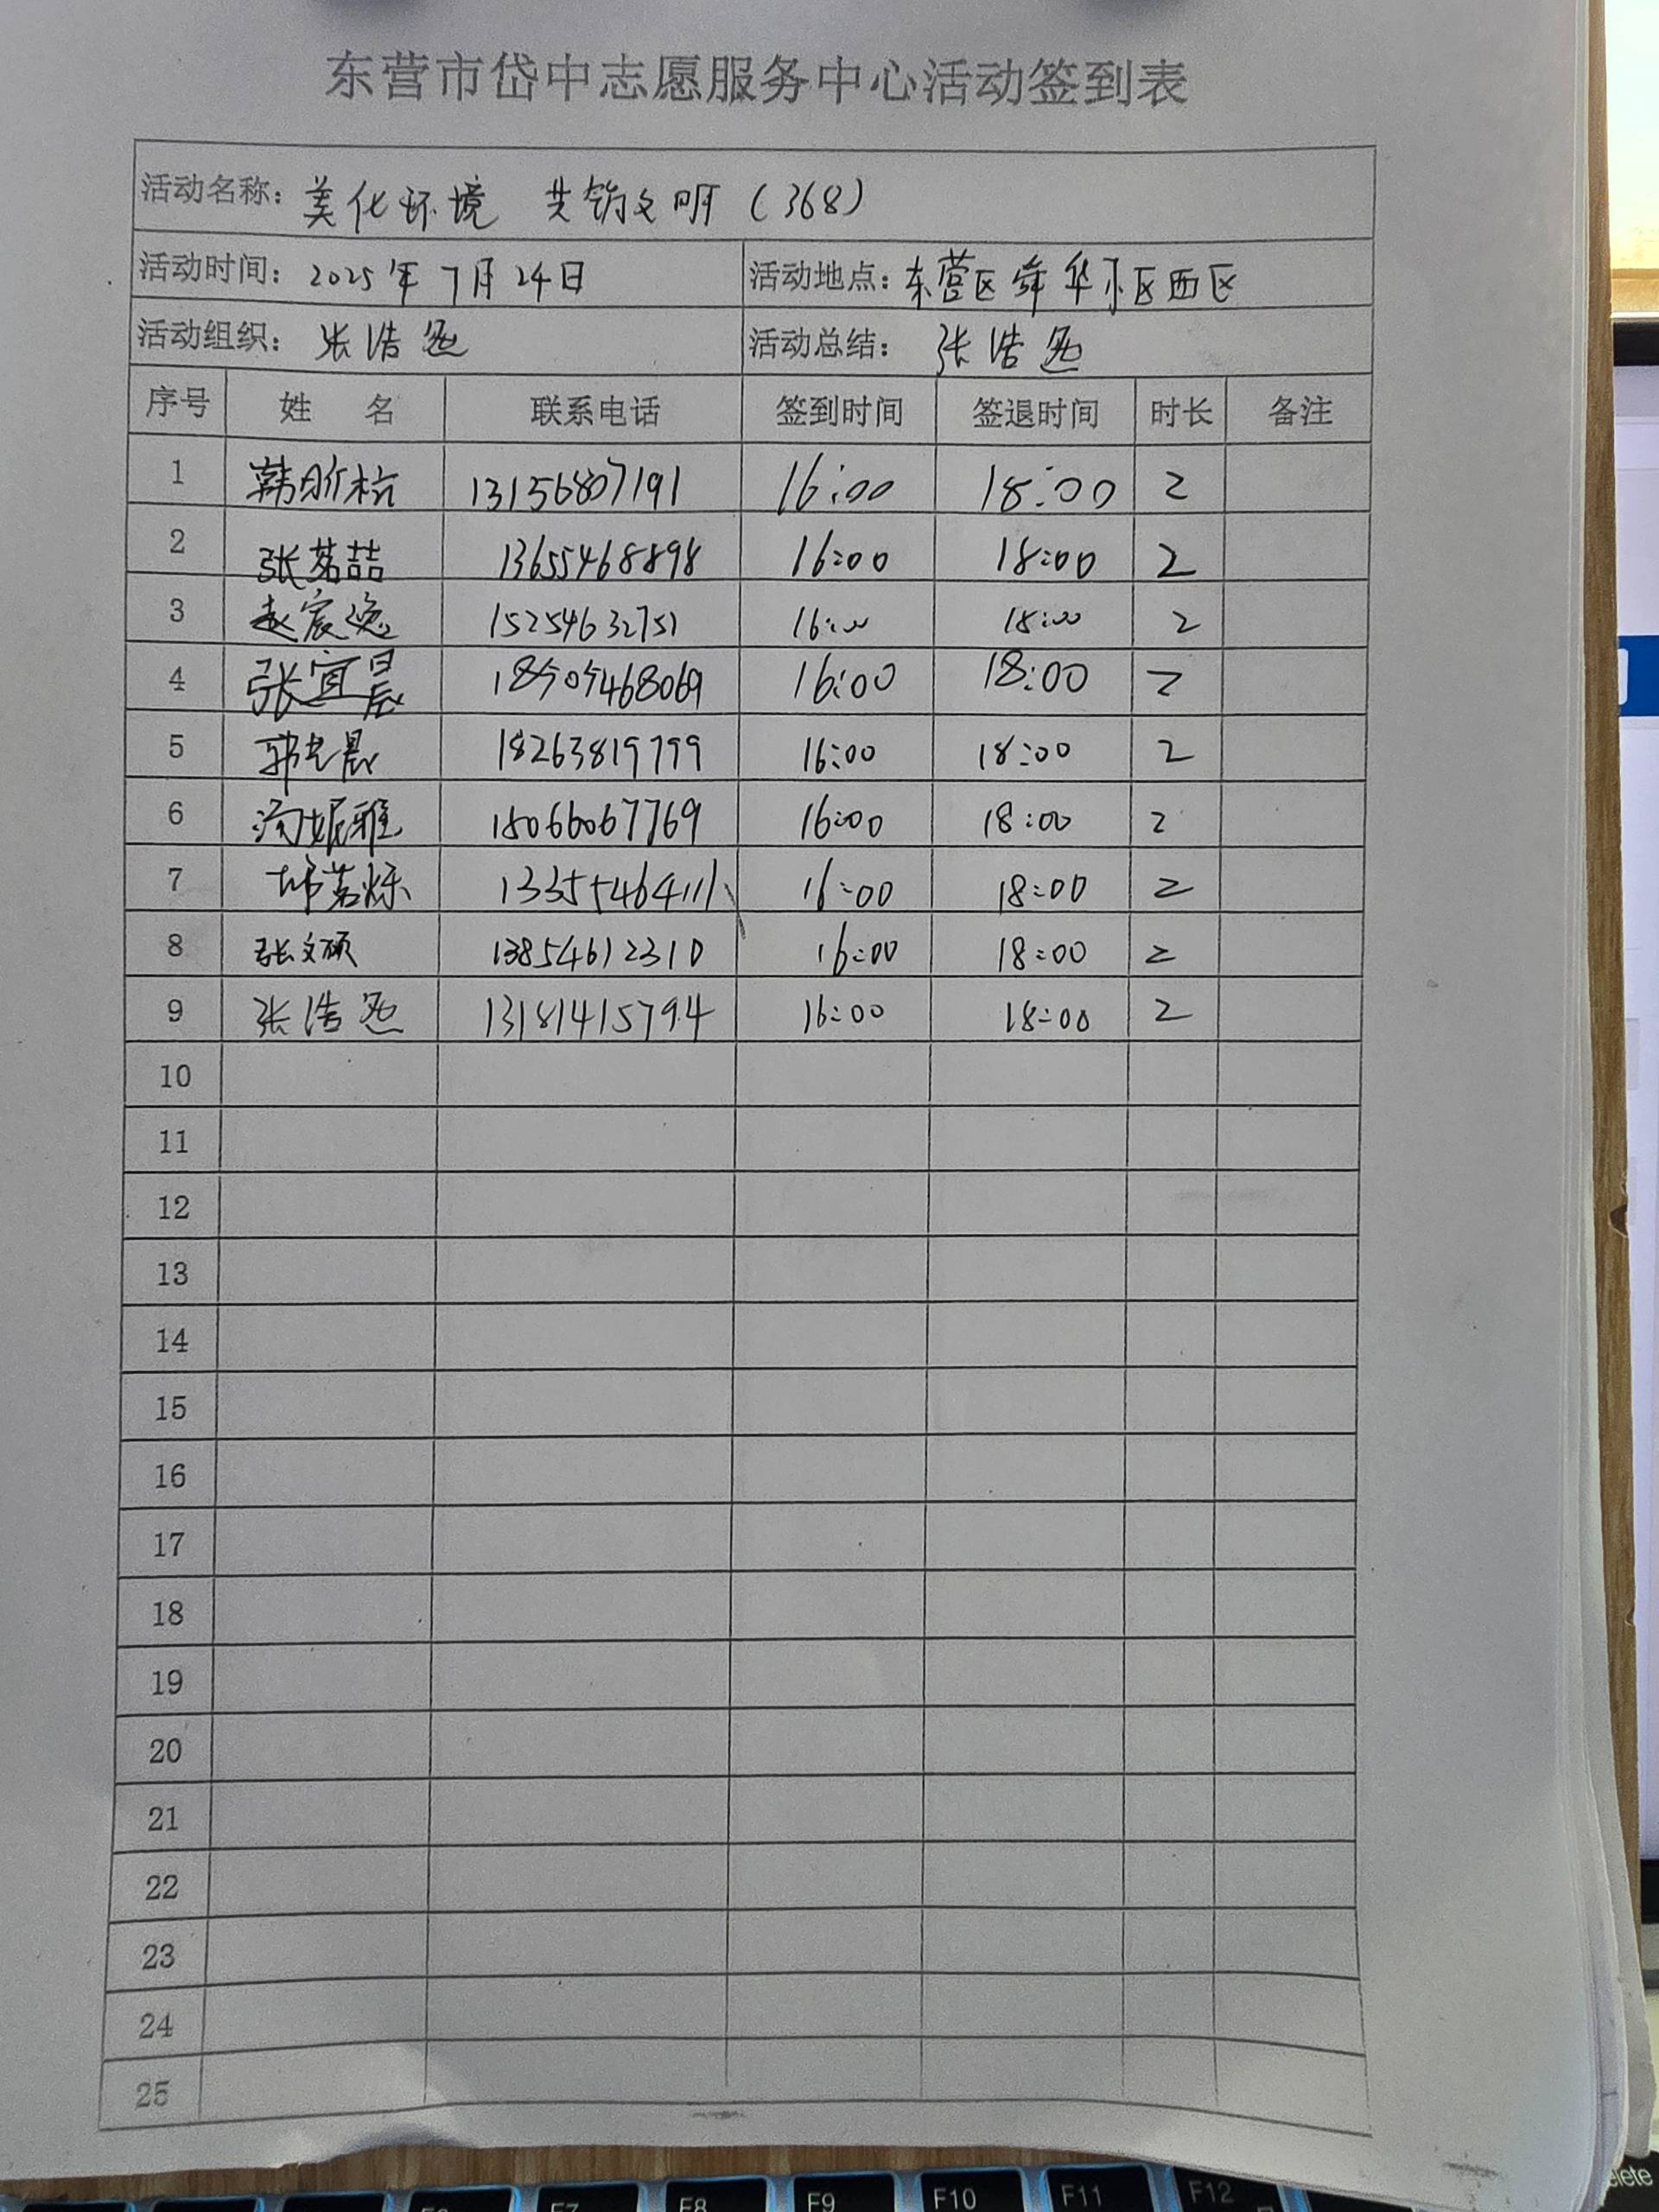 东营市岱中志愿服务中心活动签到表
活动名称：美化环境 共筑文明（368）
活动时间：2025年7月24日 活动地点：东营区舜华小区西区
活动组织：张浩 活动总结：张浩
序号 姓 名 联系电话 签到时间 签退时间 时长 备注
1 韩 13156807191 16:00 18:00 2
2 张茗喆 13655468898 16:00 18:00 2
3 赵宸逸 15254632751 16:00 18:00 2
4 张宜晨 16:00 18:00 2
5 晨 18263819799 16:00 18:00 2
6 雅 15066067769 16:00 18:00 2
7 茗烁 16:00 18:00 2
8 张文硕 13854612310 16:00 18:00 2
9 张浩 13181415794 16:00 18:00 2
10
11
12
13
14
15
16
17
18
19
20
21
22
23
24
25
F7 F8 F9 F10 F11 F12